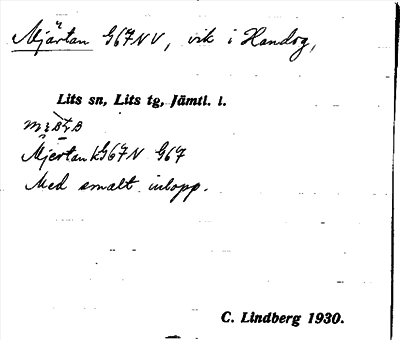 Mjärtan G67NV, vik i Handog,
Lits sn, Lits tg, Jämtl. l.
Mjertan k G67N G67
Med smalt inlopp.
C. Lindberg 1930.